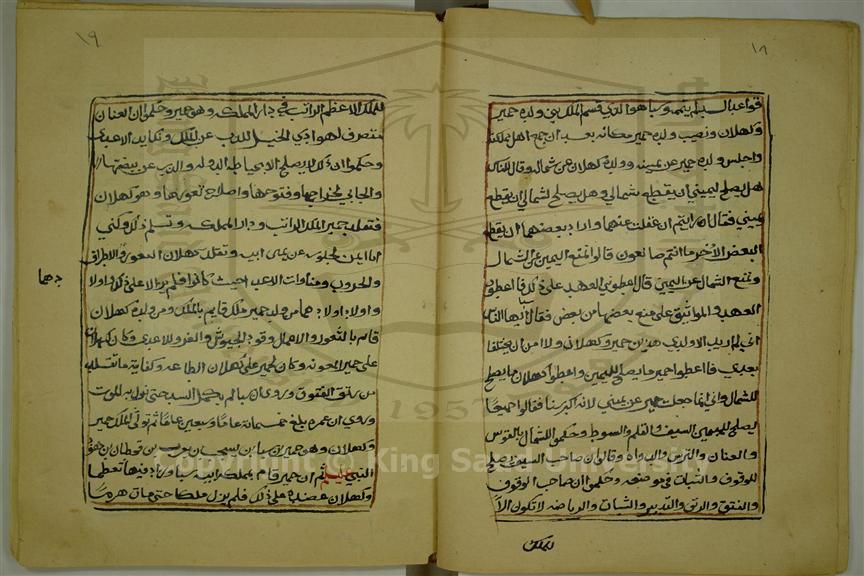 ١٨
قواعبال السد اينهه وسبا هو الذي قسم الملك بني ولده حمير
وكهلان ونصيب ولده حمير مكانه بعد ان جمع اهل مملكته
واجلس ولده حمير عن يمينه وولده كهلان عن شماله وقال للناس
هل يصلح ليميني ان يقطع شمالي وهل يصلح لشمالي ان يقطع
يميني فقالوا لا قال انتم ان غفلت عنهما واراد بعضهما ان يقطع
البعض الآخر ما انتم صانعون قالوا نمنع اليمين عن الشمال
ونمنع الشمال عن اليمين قال اعطوني العهد على ذلك فاعطوه
العهد والمواثيق على منع بعضهما من بعض فقال ايها الناس
اني لم اريد الا ولدي هذين حمير وكهلان ولا امن ان يختلفا
بعدي فاعطوا حمير ما يصلح لليمين واعطوا كهلان ما يصلح
للشمال واني انما جعلت حمير عن يميني لانه اكبر بنا فقالوا جميعًا
يصلح لليمين السيف والقلم والسوط وحكموا للشمال بالقوس
والعنان والترس والدواه وقالوا ان صاحب السيف يصلح
للوقوف والثبات في موضعه وحكموا ان صاحب الوقوف
والفتق والرتق والتدبير والثبات والرياضه لا تكون الا
للملك
١٩
للملك الاعظم الراتب في دار المملكه وهو حمير وحكموا ان العنان
متصرف لهوادي الخيل للذب عن الملك ونكاية الاعدى
وحكموا ان ذلك لا يصلح الا لحياطة الدوله والذب عن بيضتها
والجابي لخراجها وفتوحها واصلاح ثغورها وهو كهلان
فتقلد حمير الملك الراتب ودار المملكه وتسلم ذلك وكني
ايمن لجلوسه عن يمين ابيه وتقلد كهلان الثغور والاطراف
والحروب ومناوات الاعدى حيث كانوا فلم يزالا على ذلك واولا
دهما
واولاد اولادهما من ولد حمير ملك قايم بالملك ومن ولد كهلان
قائم بالثغور والاعمال وقود الجيوش والغزو للاعدى وكان لكهلان
على حمير المعونه وكان لحمير على كهلان الطاعه وكفاية ما تقلده
من رتق الفتوق وروي ان سبا لم يكمل السد حتى نزل به الموت
وروي ان عمره بلغ خمسمائة عامًا وسبعين عامًا ثم تولى الملك حمير
وكهلان وهو حمير بن سبا بن يشجب بن يعرب بن قحطان بن هود
النبي عليه السلام ثم ان حمير قام بمملكة ابيه سبا وزاد فيها تعظما
وكهلان عضده على ذلك فلم يزل ملكا حتى مات هرما